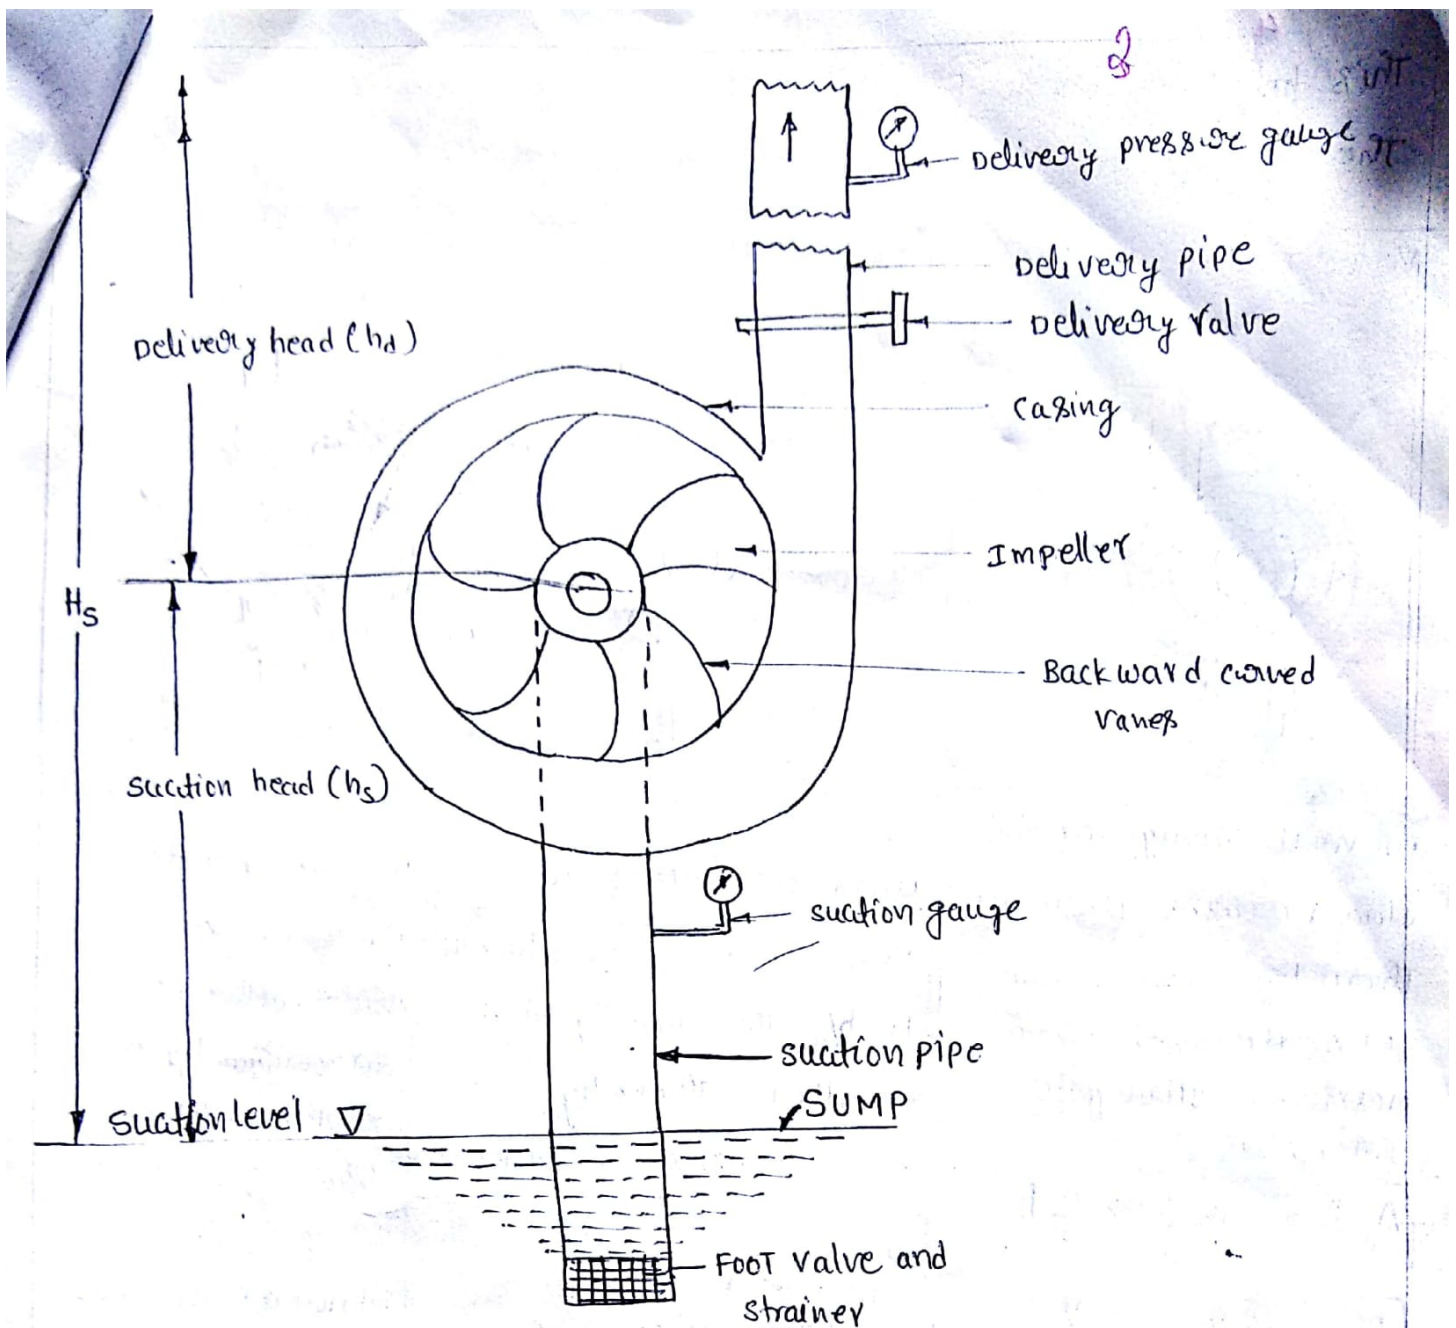 2
Delivery pressure gauge
Delivery pipe
Delivery valve
Delivery head (hd)
casing
Impeller
Hs
Backward curved
vanes
suction head (hs)
suction gauge
suction pipe
SUMP
suction level
FOOT valve and
strainer